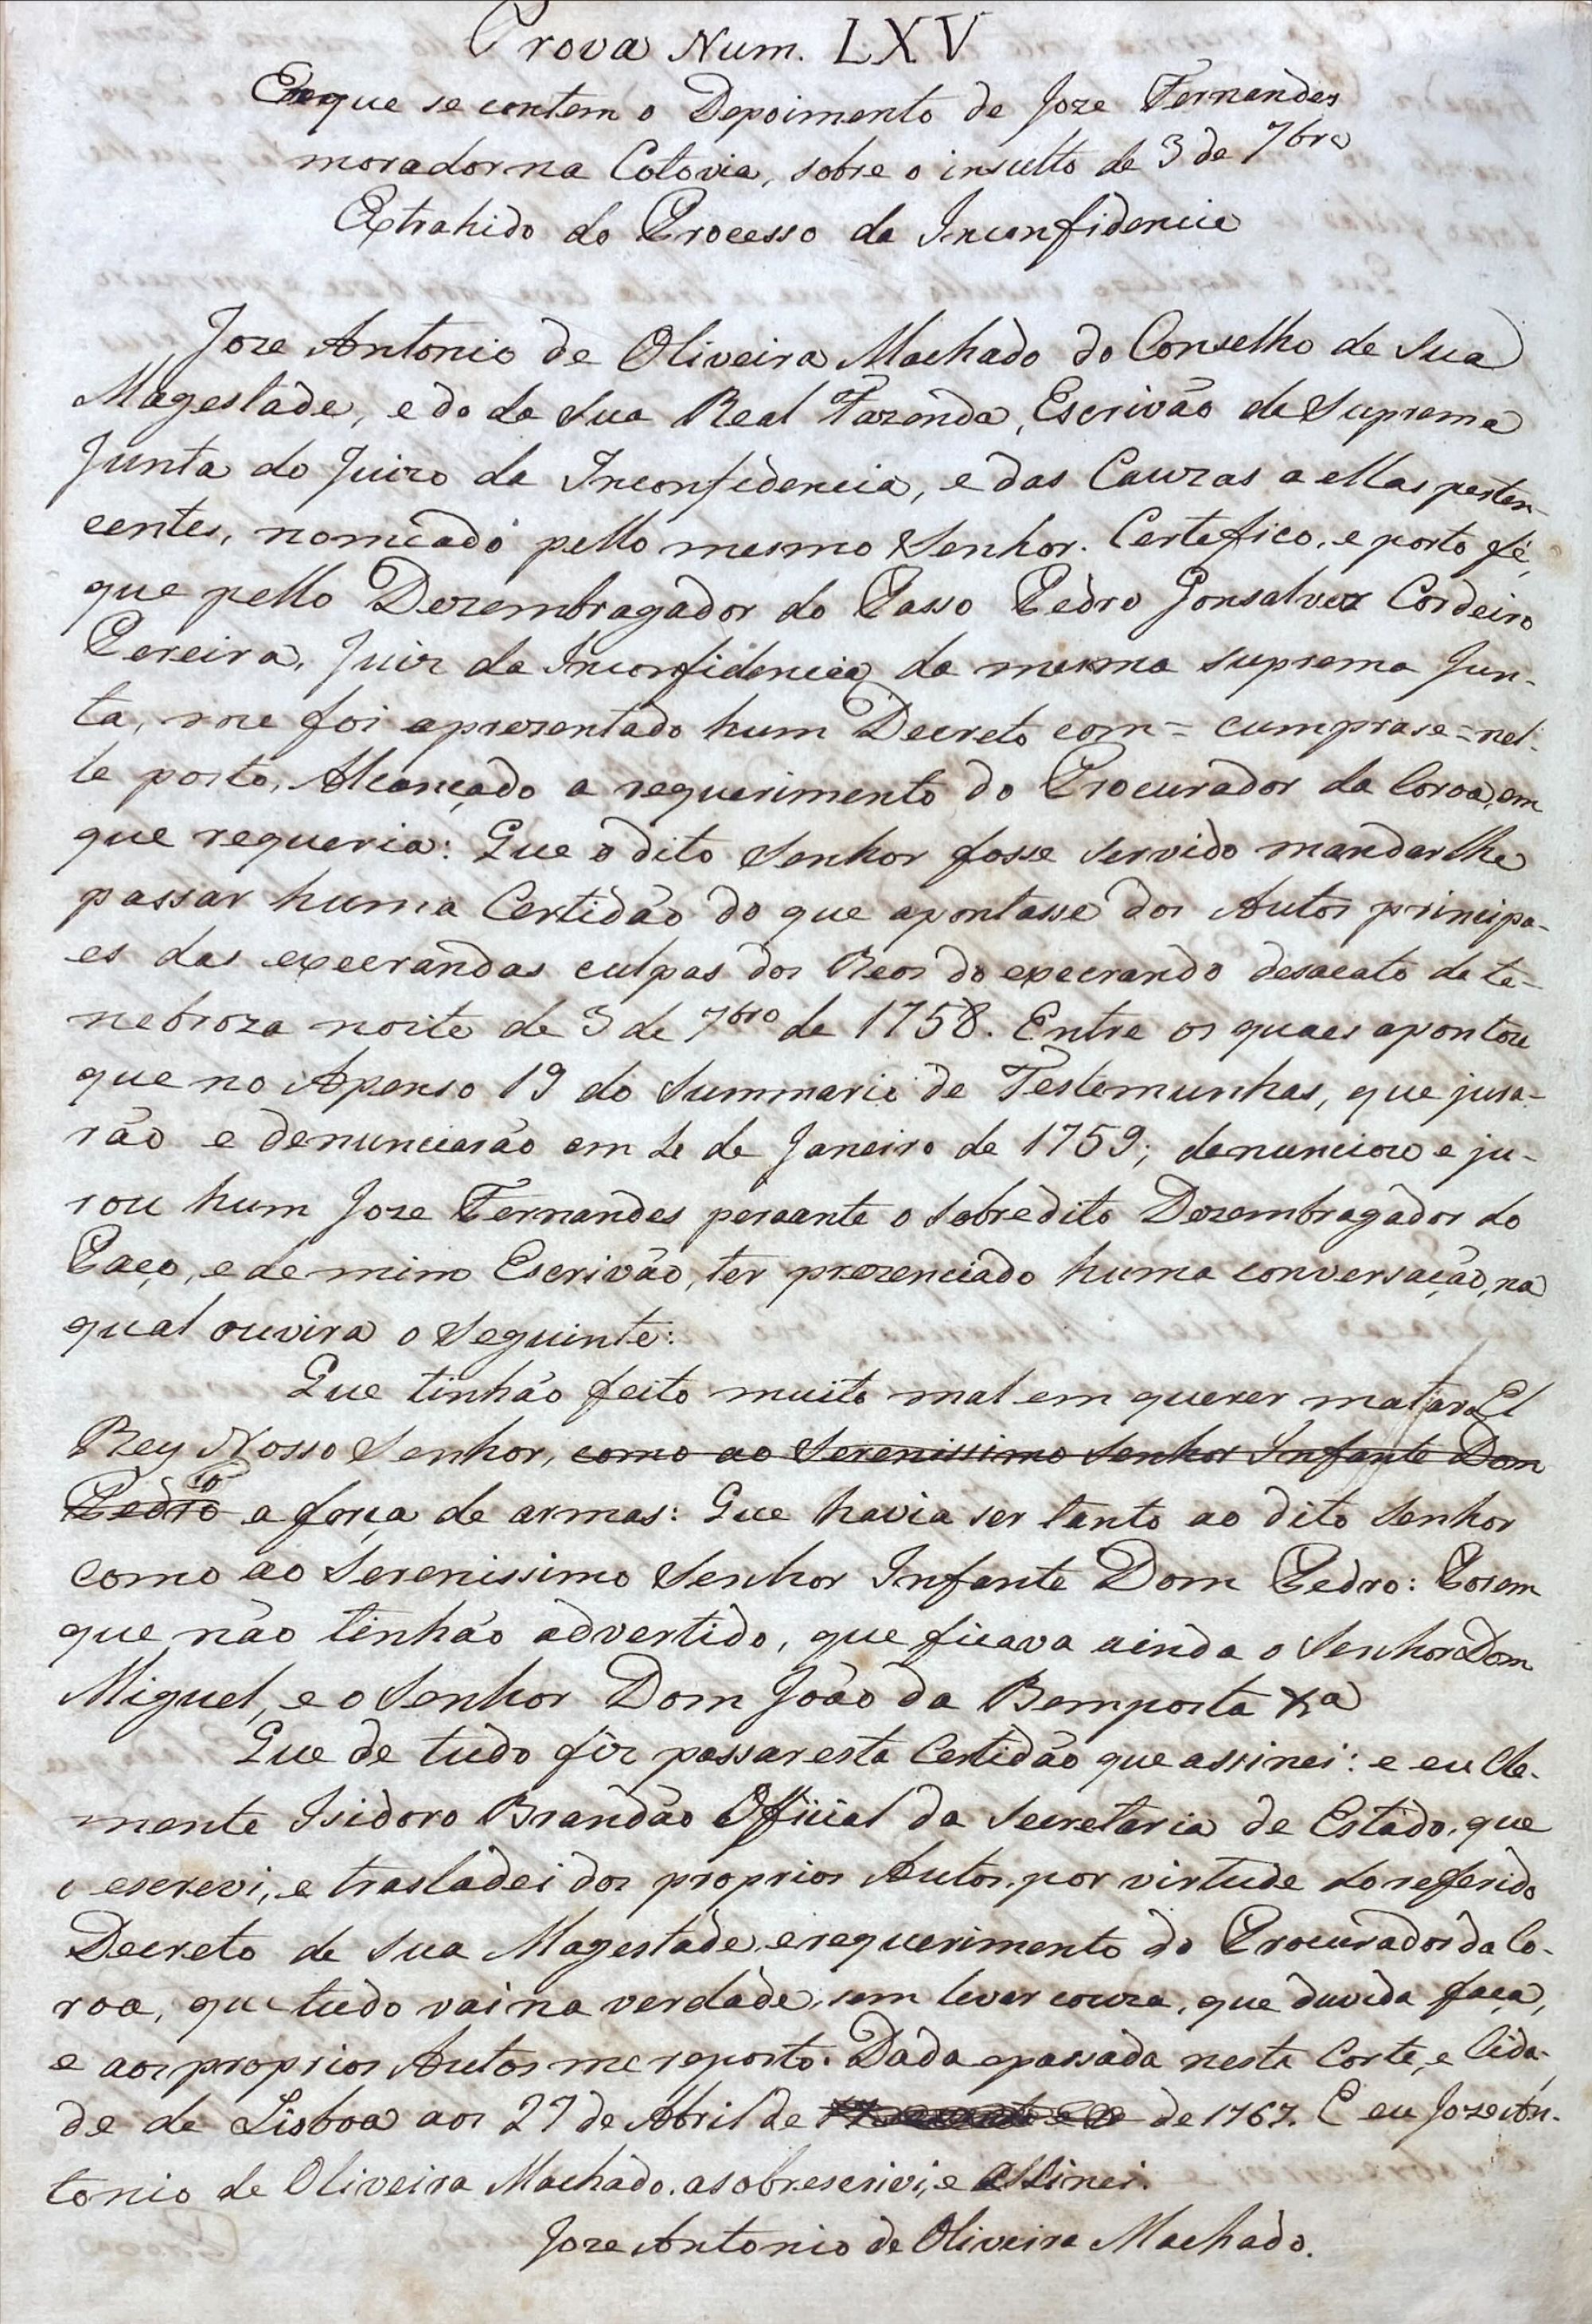 Prova Num. LXV
Emque se contem o Depoimento de Joze Fernandes
morador na Cotovia, sobre o insulto de 3 de 7bro
Extrahido do Processo da Inconfidencia
Joze Antonio de Oliveira Machado do Conselho de Sua
Magestade, e do da Sua Real Fazenda, Escrivão da Suprema
Junta do Juizo da Inconfidencia, e das Cauzas a ellas perten-
centes, nomeado pello mesmo Senhor. Certefico, e porto fé,
que pello Dezembragador do Passo Pedro Gonsalvez Cordeiro
Pereira, Juiz da Inconfidencia da mesma suprema Jun-
ta, me foi aprezentado hum Decreto com = cumprase = nel-
le posto, Alcançado a requerimento do Procurador da Coroa, em
que requeria: Que o dito Senhor fosse servido mandarlhe
passar huma Certidão do que apontasse dos Autos principa-
es das execrandas culpas dos Reos do execrando desacato da te-
nebroza noite de 3 de 7bro de 1758. Entre os quaes apontou
que no Apenso 19 do Summario de Testemunhas, que jura-
rão e denunciarão em 4 de Janeiro de 1759; denunciou e ju-
rou hum Joze Fernandes peraante o sobredito Dezembragador do
Paço, e de mim Escrivão, ter prezenciado huma conversação, na
qual ouvira o seguinte:
Que tinhão feito muito mal em querer matar a El
Rey Nosso Senhor, como ao Serenissimo Senhor Infante Dom
Pedro a força de armas: Que havia ser tanto ao dito Senhor
como ao Serenissimo Senhor Infante Dom Pedro: Porem
que não tinhão advertido, que ficava ainda o Senhor Dom
Miguel, e o Senhor Dom João da Bemposta &a
Que de tudo fiz passar esta Certidão que assinei: e eu Cle-
mente Isidoro Brandão Official da Secretaria de Estado, que
o escrevi, e trasladei dos proprios Autos, por virtude do referido
Decreto de Sua Magestade, e requerimento do Procurador da Co-
roa, que tudo vai na verdade, sem levar couza, que duvida faça,
e aos proprios Autos me reporto. Dada e passada nesta Corte, e Cida-
de de Lisboa aos 27 de Abril de de 1767. E eu Joze An-
tonio de Oliveira Machado. a sobrescrivi, e assinei.
Joze Antonio de Oliveira Machado.